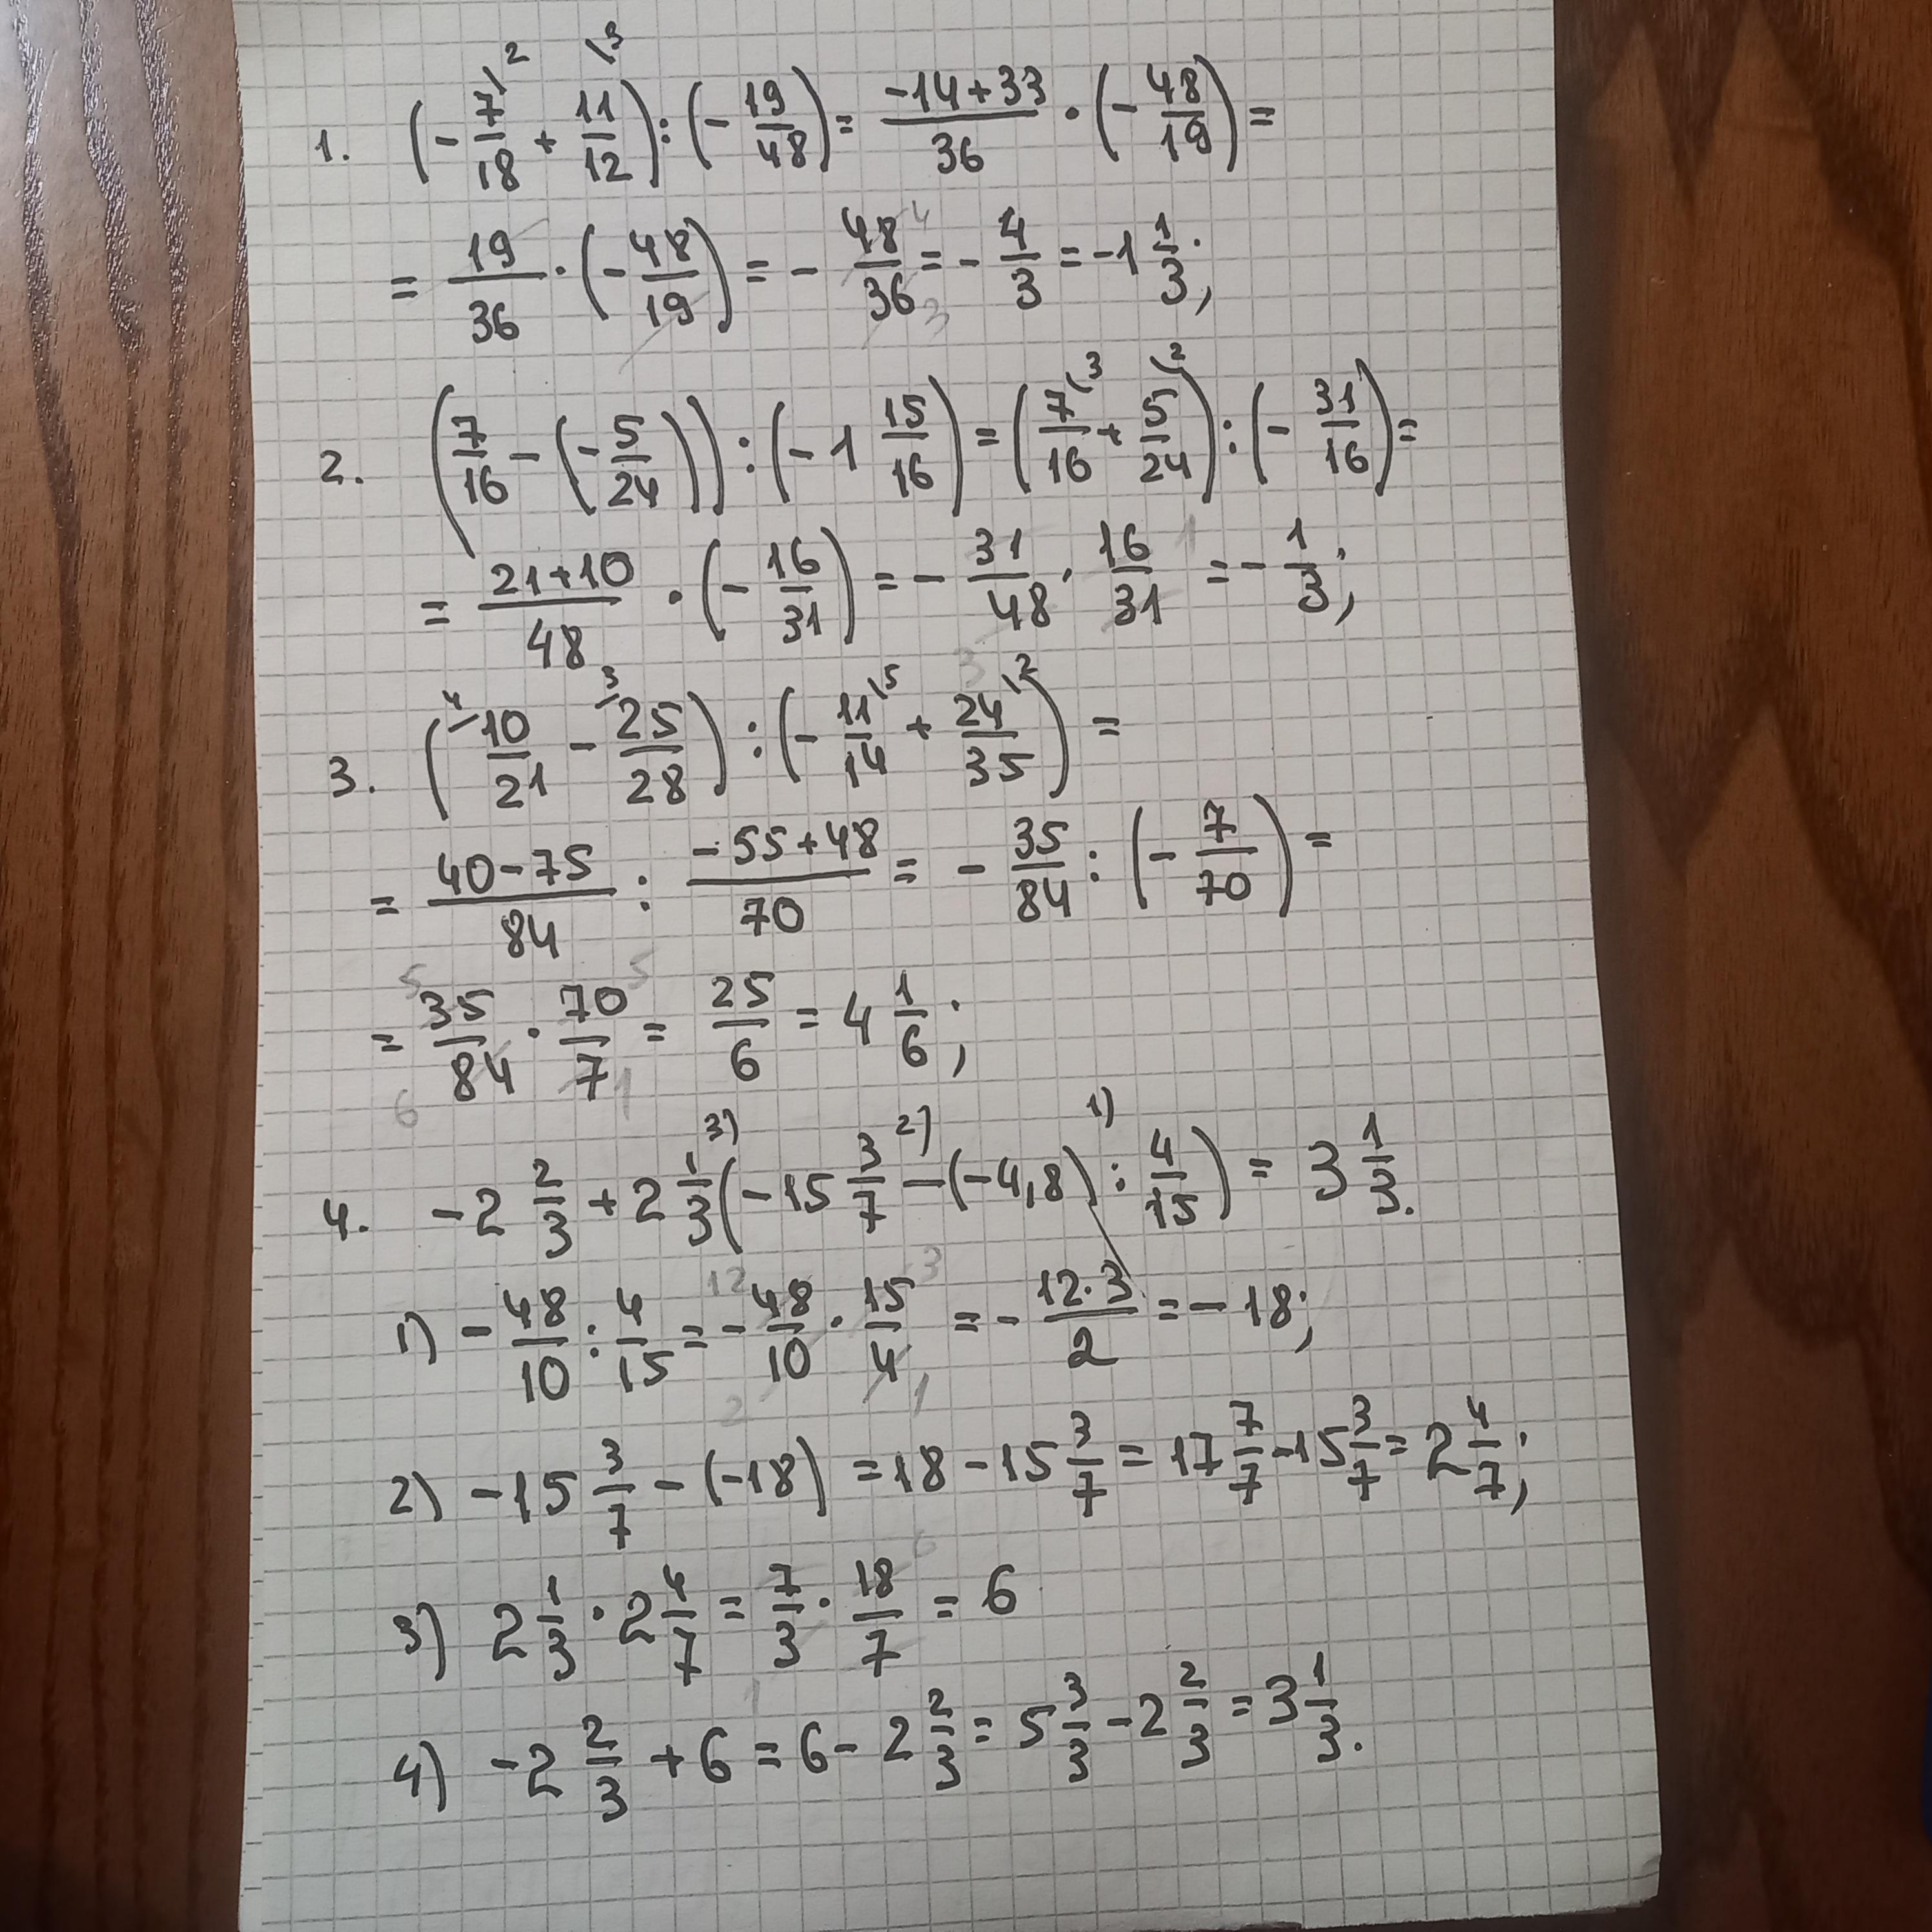 1. (-7/18 + 11/12) : (-19/48) = (-14+33)/36 · (-48/19) =
= 19/36 · (-48/19) = -48/36 = -4/3 = -1 1/3;
2. (7/16 - (-5/24)) : (-1 15/16) = (7/16 + 5/24) : (-31/16) =
= (21+10)/48 · (-16/31) = -31/48 · 16/31 = -1/3;
3. (10/21 - 25/28) : (-11/14 + 24/35) =
= (40-75)/84 : (-55+48)/70 = -35/84 : (-7/70) =
= 35/84 · 70/7 = 25/6 = 4 1/6;
4. -2 2/3 + 2 1/3 (-15 3/7 - (-4,8) : 4/15) = 3 1/3.
1) -48/10 : 4/15 = -48/10 · 15/4 = -(12·3)/2 = -18;
2) -15 3/7 - (-18) = 18 - 15 3/7 = 17 7/7 - 15 3/7 = 2 4/7;
3) 2 1/3 · 2 4/7 = 7/3 · 18/7 = 6
4) -2 2/3 + 6 = 6 - 2 2/3 = 5 3/3 - 2 2/3 = 3 1/3.